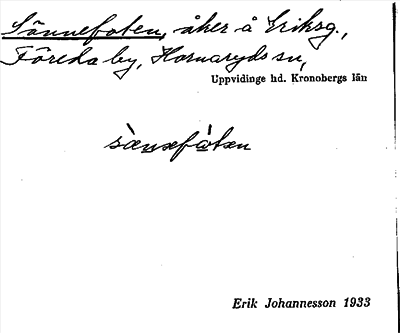 Sönnefoten, åker å Eriksg.,
Föreda by, Hornaryds sn,
Uppvidinge hd. Kronobergs län
sǜnəfⱥ̀tən
Erik Johannesson 1933